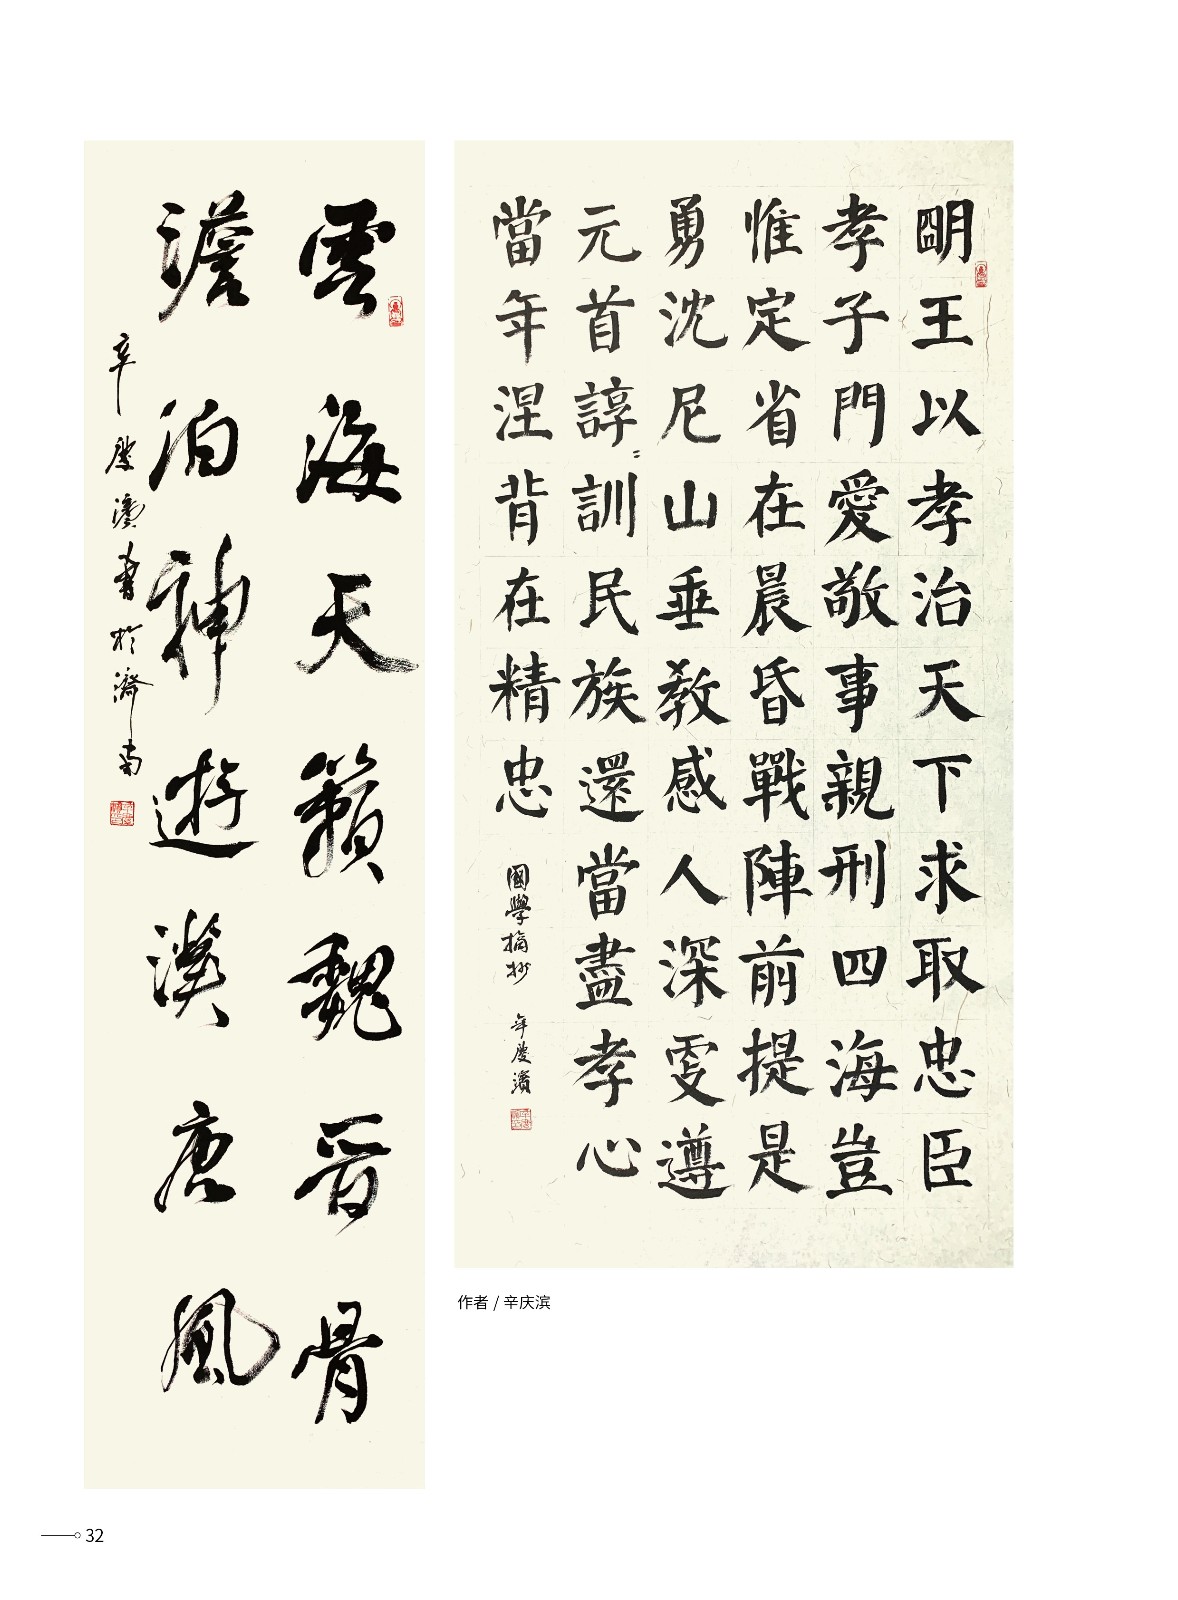 雲海天籟魏晉骨
澹泊神遊漢唐風
辛慶濱書於濟南
朙王以孝治天下求取忠臣
孝子門愛敬事親刑四海豈
惟定省在晨昏戰陣前提是
勇沈尼山垂教感人深遵
元首諄〻訓民族還當盡孝心
當年涅背在精忠
國學摘抄 辛慶濱
作者 / 辛庆滨
32